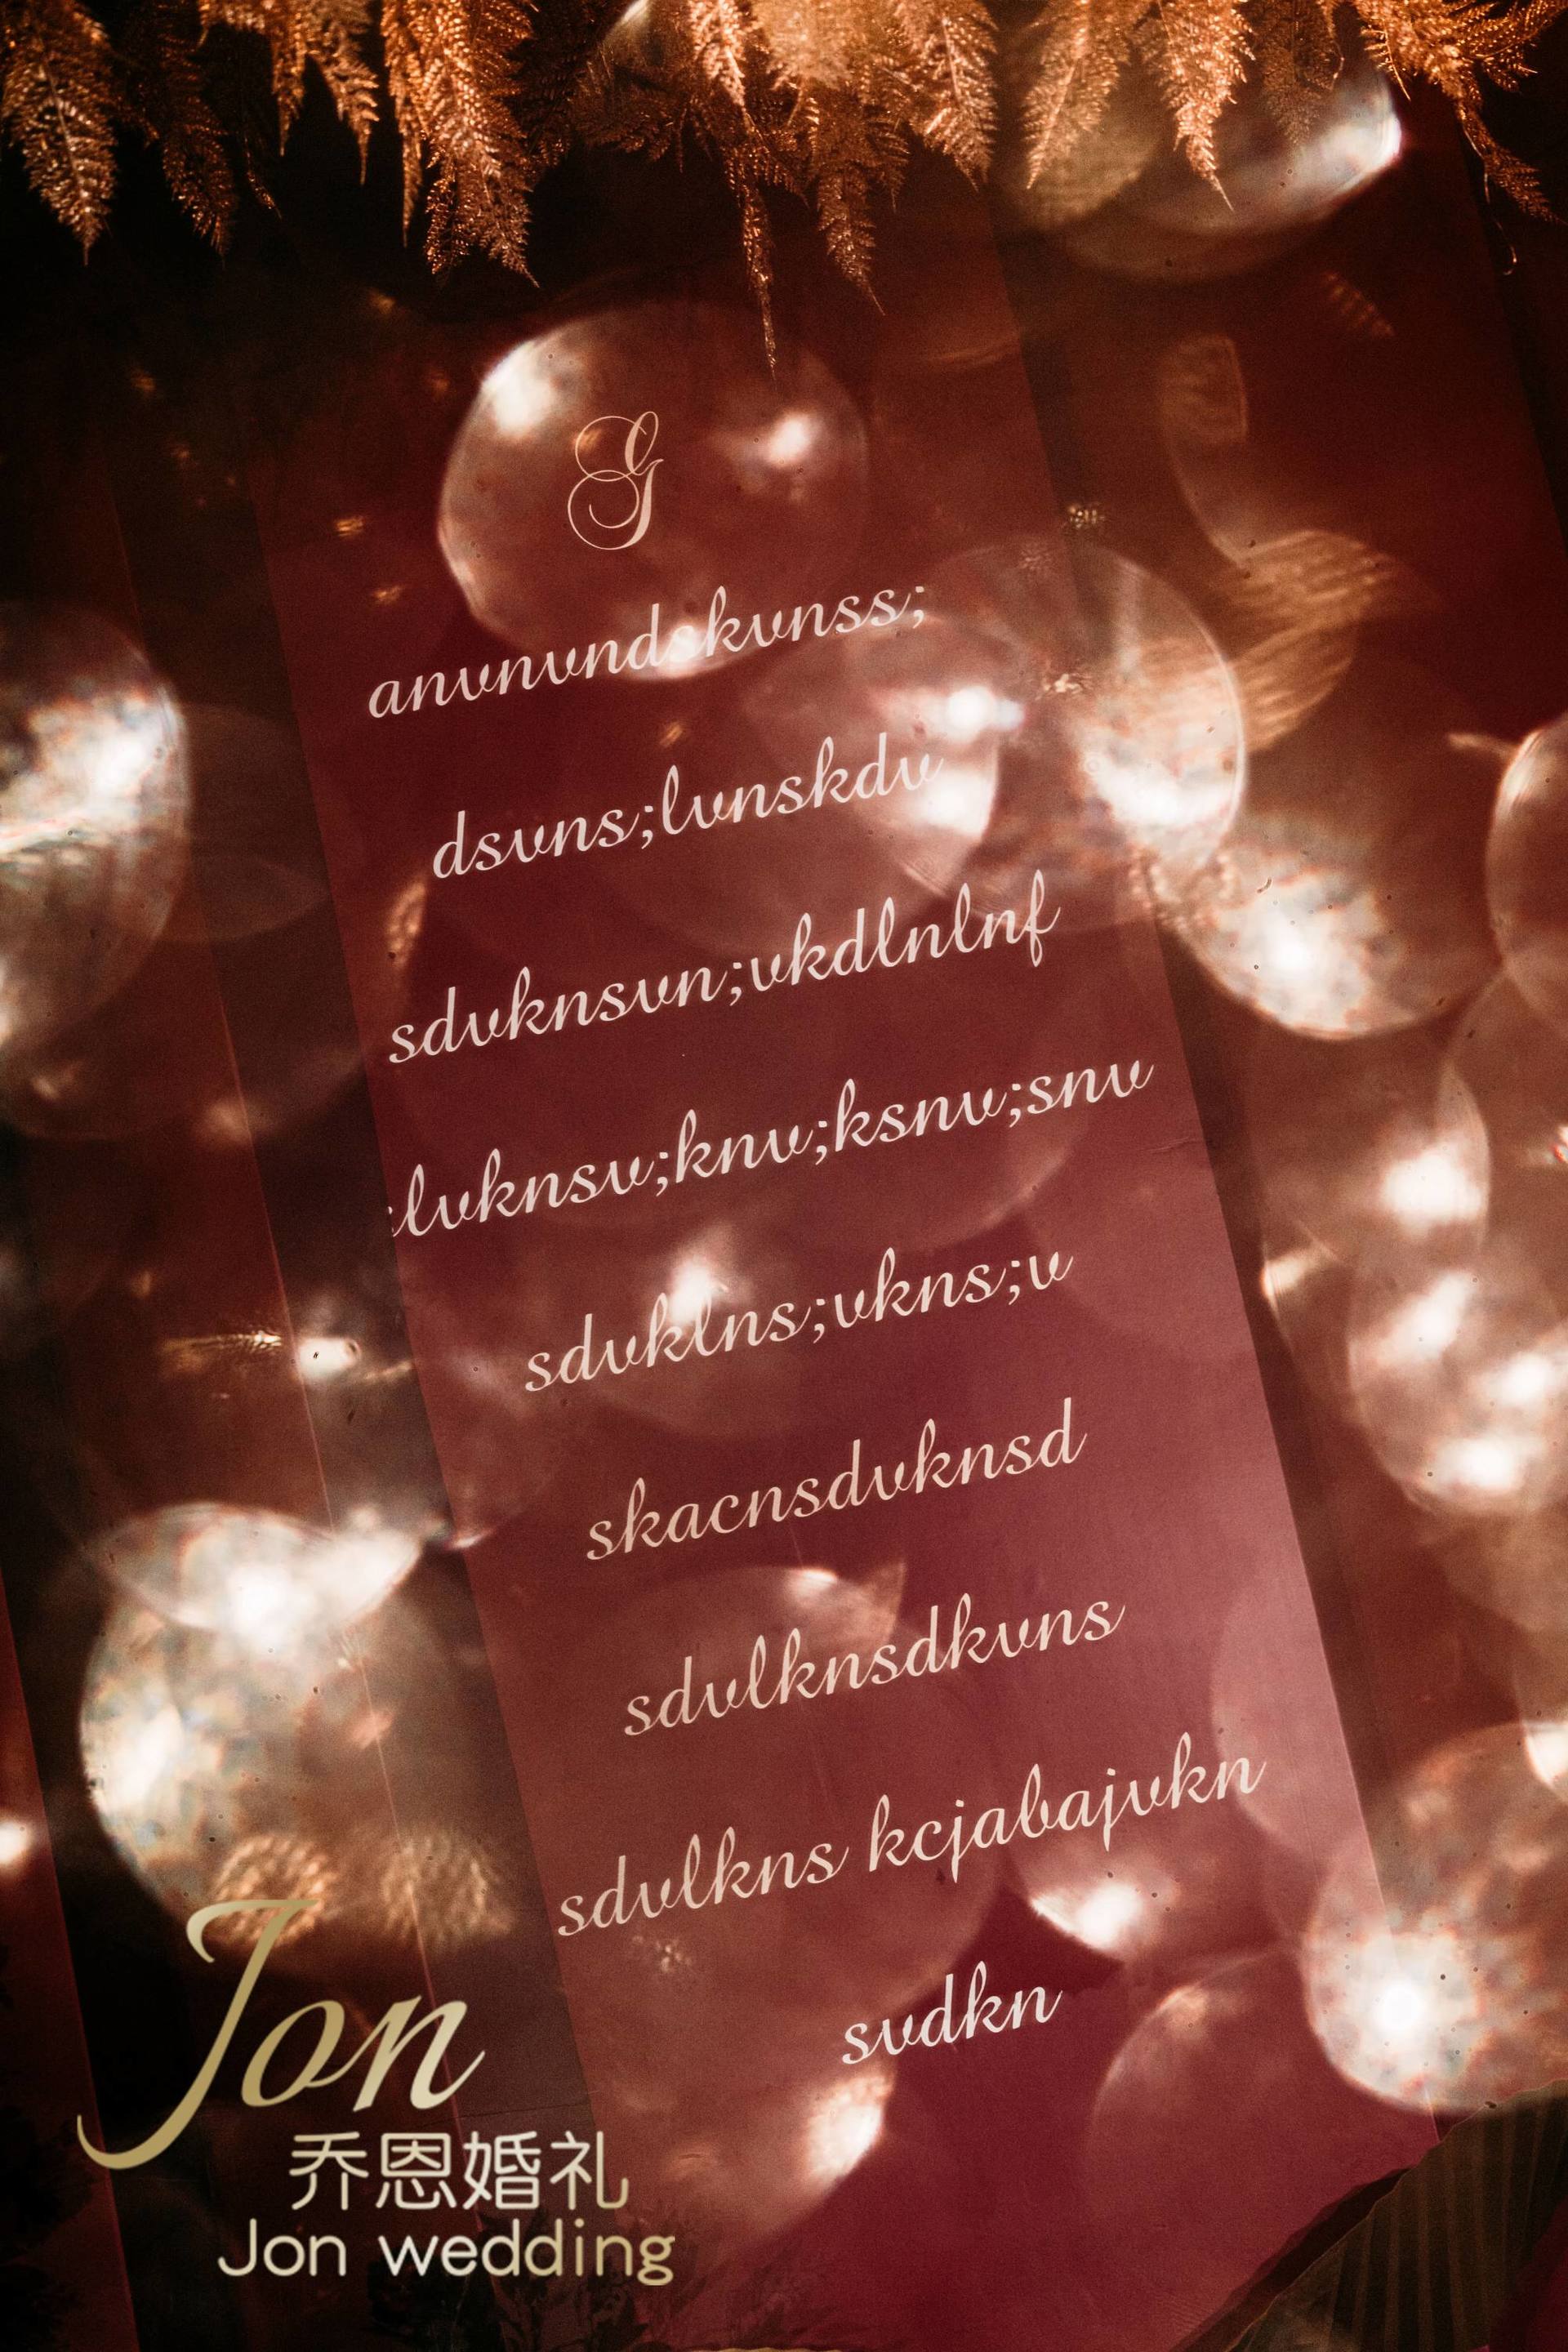 G
anvnvndskvnss;
dsvns;lvnskdv
sdvknsvn;vkdlnlnf
;lvknsv;knv;ksnv;snv
sdvklns;vkns;v
skacnsdvknsd
sdvlknsdkvns
sdvlkns kcjabajvkn
svdkn
Jon
乔恩婚礼
Jon wedding